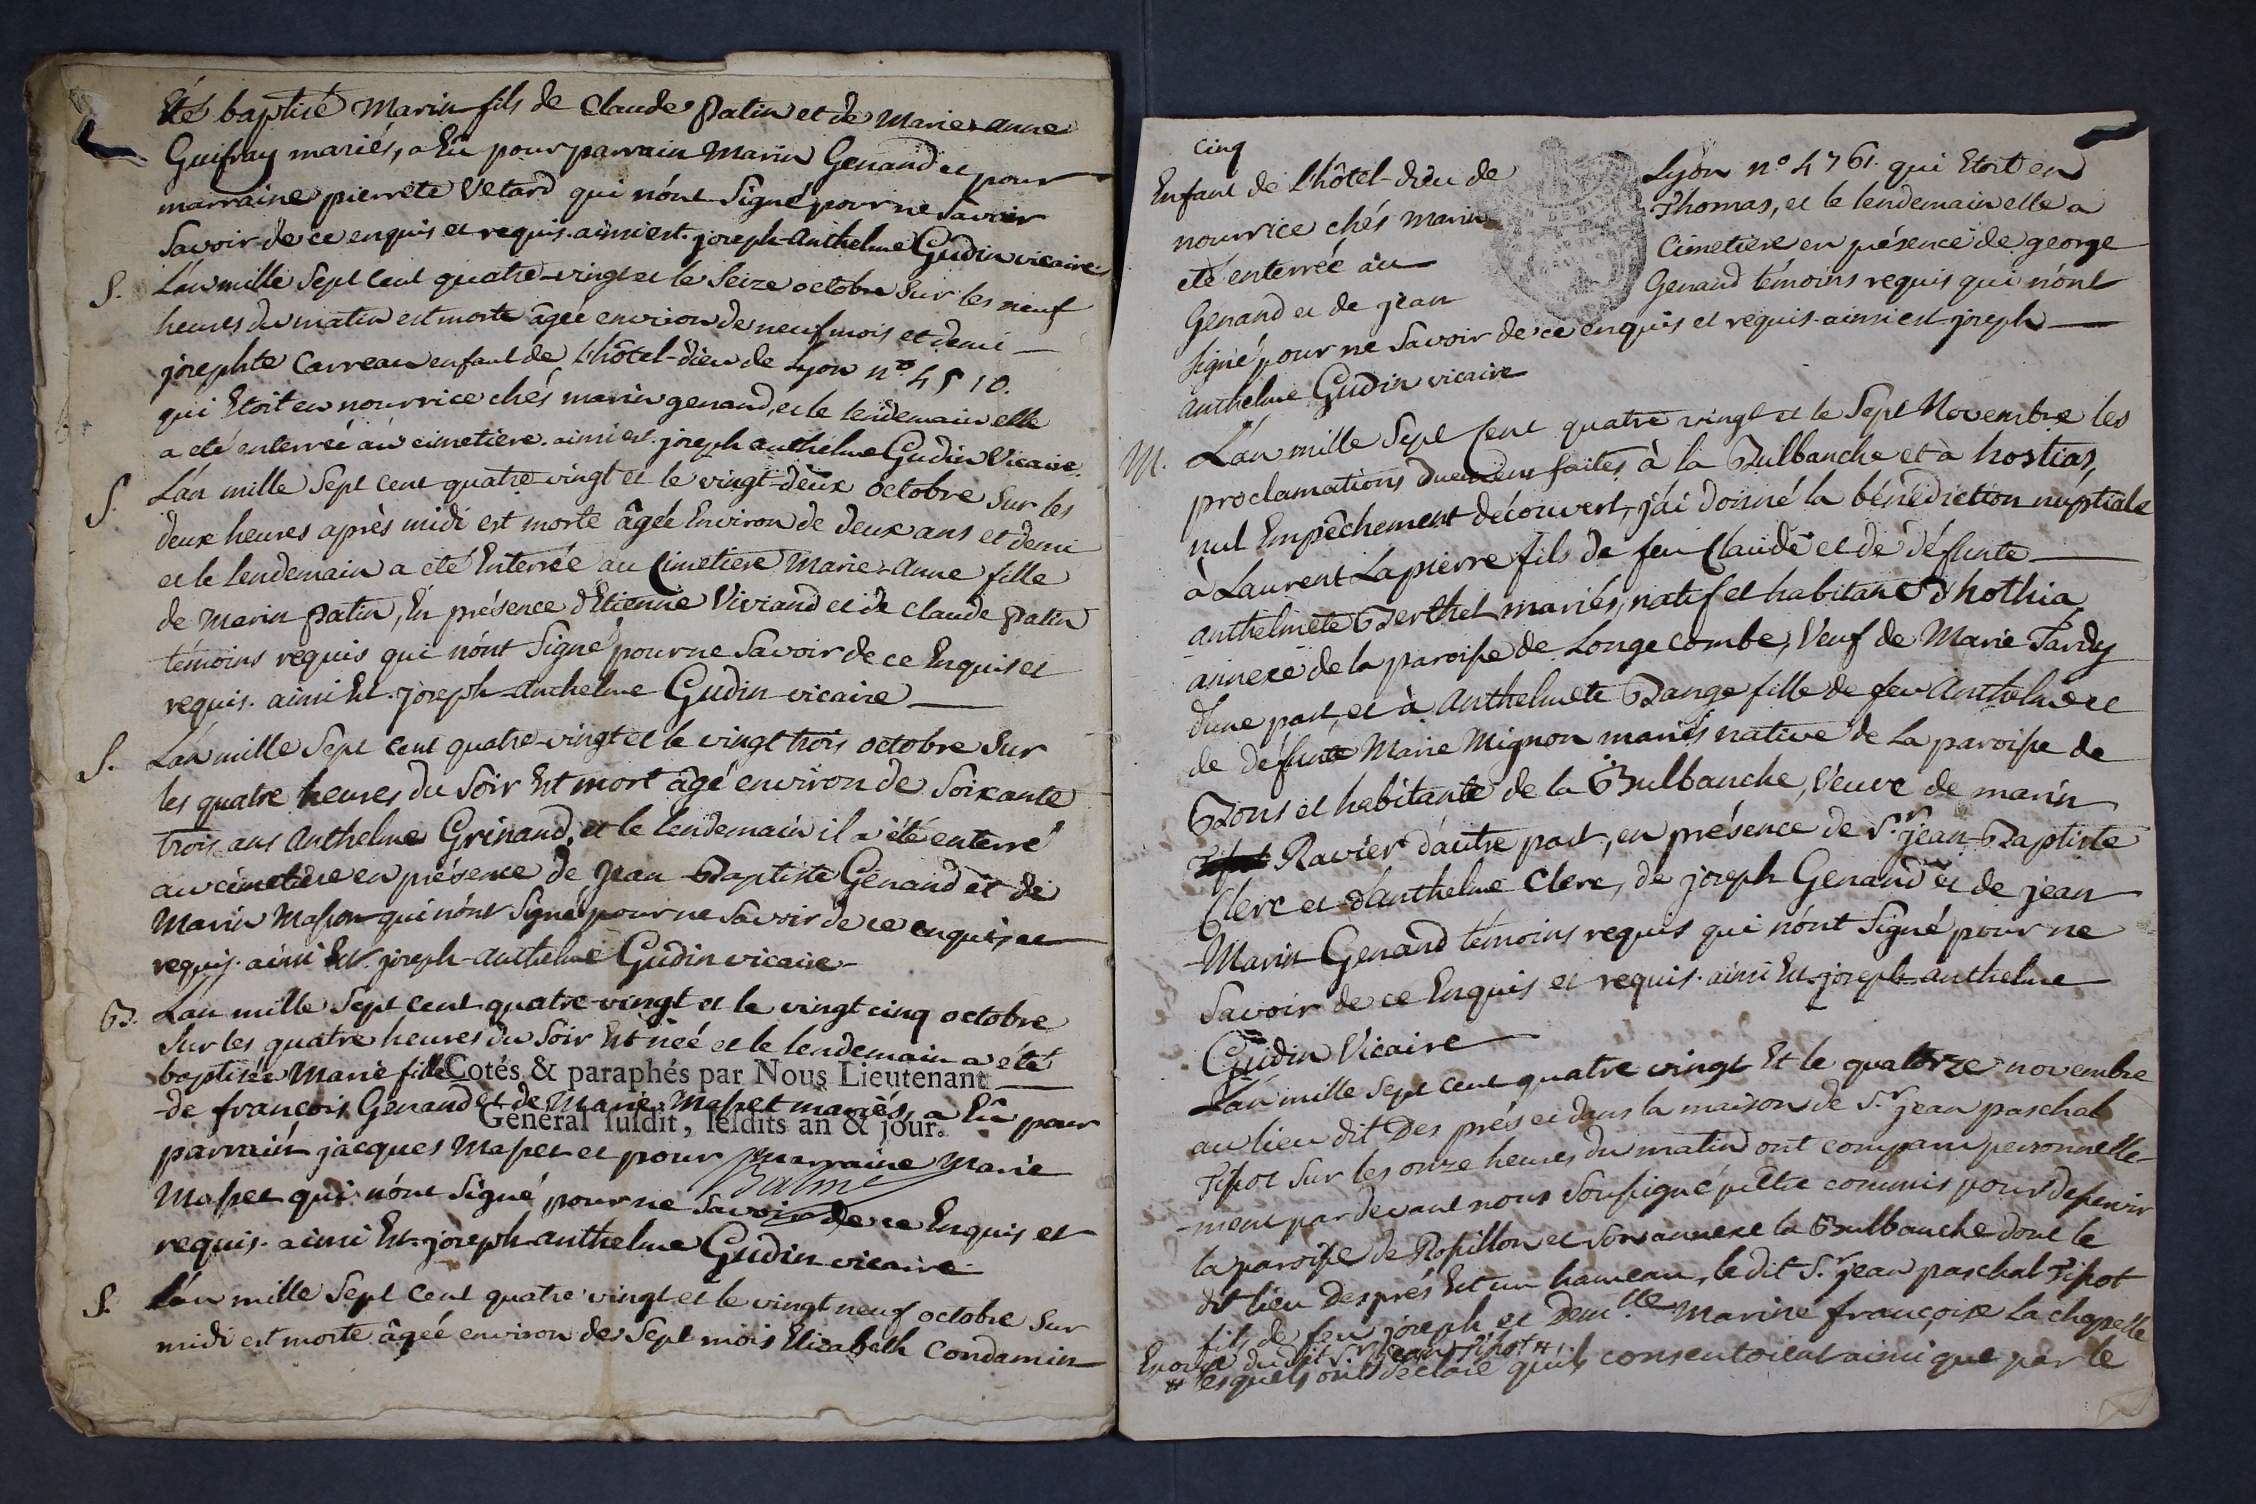 Eté baptisé Marin fils de Claude Patin et de Marie-anne
Guifray mariés, a Eu pour parrain Marin Genand et pour
marraine pierrete Vetard qui n'ont Signé pour ne Savoir
Savoir de ce enquis et requis. ainsi est. joseph-Anthelme Gudin vicaire
S. L'an mille Sept Cent quatre-vingt et le Seize octobre Sur les neuf
heures du matin est morte âgée environ de neuf mois et demi
josephte Carreau enfant de l'hôtel-dieu de Lyon n.º 4510.
qui Etoit en nourrice chés marin genand, et le lendemain elle
a eté enterrée au cimetiere. ainsi est. joseph anthelme Gudin Vicaire
S. L'an mille Sept cent quatre vingt et le vingt-deux octobre Sur les
deux heures après midi est morte âgée Environ de deux ans et demi
et le lendemain a eté Enterrée au Cimetiere Marie-Anne fille
de Marin Patin, En présence d'Etienne Viviand et de Claude Patin
temoins requis qui n'ont Signé pour ne Savoir de ce Enquis et
requis. ainsi Est. joseph-anthelme Gudin vicaire
S. L'an mille Sept Cent quatre-vingt et le vingt trois octobre Sur
les quatre heures du Soir Est mort âgé environ de Soixante
trois ans Anthelme Grinand, et le lendemain il a été enterré
au cimetiere en présence de Jean Baptiste Genand et de
Marin Masson qui n'ont Signé pour ne Savoir de ce enquis et
requis. ainsi Est. joseph-anthelme Gudin vicaire
B. L'an mille Sept cent quatre-vingt et le vingt cinq octobre
Sur les quatre heures du Soir Est née et le lendemain a été
baptisée Marie fille
Cotés & paraphés par Nous Lieutenant
de francois Genand et de Marie Masset mariés, a Eu pour
Général susdit, lesdits an & jour.
parrain jacques Masset et pour Marraine Marie
Balme
Masset qui n'ont Signé pour ne Savoir de ce Enquis et
requis. ainsi Est. joseph-anthelme Gudin vicaire
S. L'an mille Sept Cent quatre vingt et le vingt neuf octobre Sur
midi est morte âgée environ de Sept mois Elizabeth Condamin
Cinq
Enfant de L'hôtel-dieu de Lyon n.º 4761. qui Etoit en
nourrice chés Marin Thomas, et le lendemain elle a
eté enterrée au Cimetiere en présence de george
Genand et de jean Genand témoins requis qui n'ont
Signé pour ne Savoir de ce enquis et requis. ainsi est. joseph
anthelme Gudin vicaire
M. L'an mille Sept Cent quatre vingt et le Sept Novembre les
proclamations duement faites à la Bulbanche et à hostias,
nul Empêchement découvert, j'ai donné la bénédiction nuptiale
à Laurent Lapierre fils de feu Claude et de défunte
anthelmete Berthet mariés, natif et habitant d'hothia
annexe de la paroisse de Longecombe, Veuf de Marie Tardy
d'une part, et à Anthelmete Bange fille de feu Anthelme et
de défunte Marie Mignon mariés native de La paroisse de
Bons et habitante de la Bulbanche, Veuve de marin
Ravier d'autre part, en présence de S.r jean-Baptiste
Clerc et d'anthelme Clerc, de joseph Genand et de jean
Marin Genand témoins requis qui n'ont Signé pour ne
Savoir de ce Enquis et requis. ainsi Est. joseph-anthelme
Gudin Vicaire
L'an mille Sept cent quatre vingt Et le quatorze novembre
au lieu dit Des prés et dans la maison de S.r jean paschal
Tissot Sur les onze heures du matin ont comparu personnelle-
-ment pardevant nous Soussigné prêtre commis pour desservir
la paroisse de Rossillon et Son annexe la Bulbanche dont le
dit lieu Després Est un hameau, le dit S.r jean paschal Tissot
fils de feu joseph et Dem.lle Marine françoise La chapelle
Epouse du dit S.r jean Tissot #
# lesquels ont déclaré qu'ils consentoient ainsi que par le